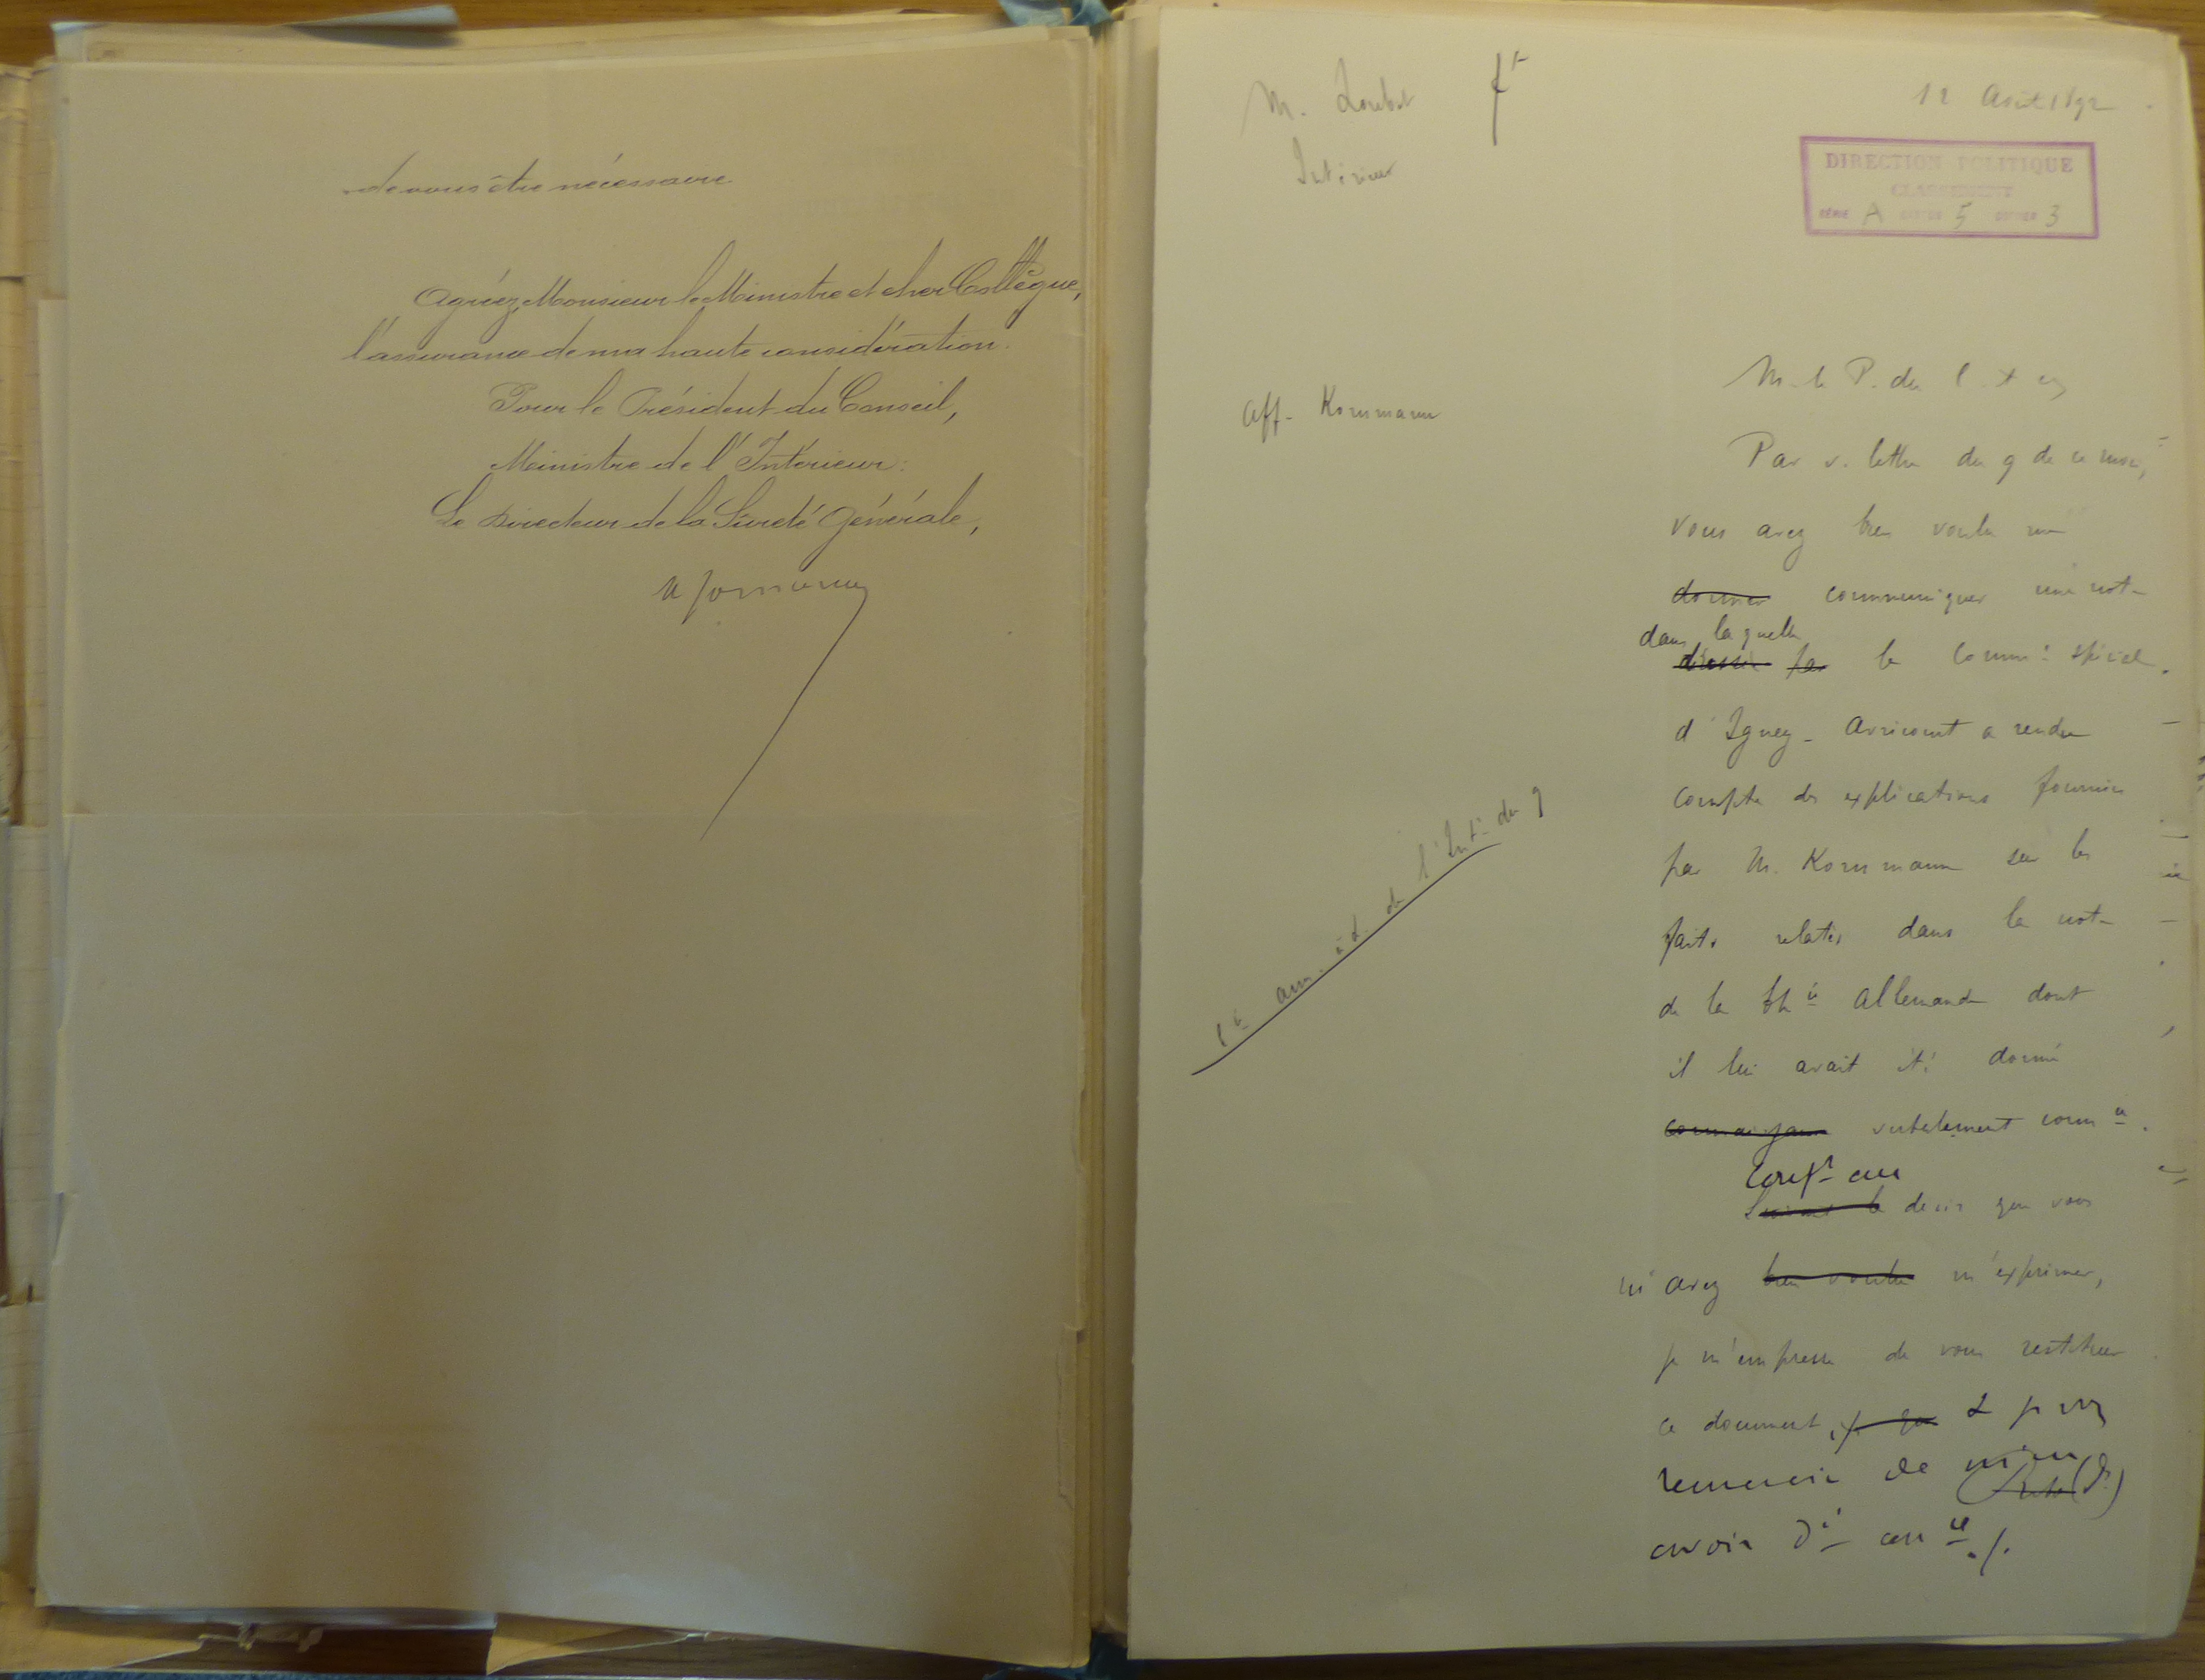 de vous être nécessaire
Agréez, Monsieur le Ministre et cher Collègue,
l'assurance de ma haute considération.
Pour le Président du Conseil,
Ministre de l'Intérieur:
Le Directeur de la Sûreté Générale,
M. Loubet
Intérieur
12 Août 1892
DIRECTION POLITIQUE
CLASSEMENT
SÉRIE A CARTON 5 DOSSIER 3
Aff. Kornmann
1 ann. à d. de l'Int. du 9
M. le P. du C.
Par v. lettre du 9 de ce mois,
vous avez bien voulu me
donner communiquer une note
dans laquelle
dressée par le Comm. spécial
d'Igney-Avricourt a rendu
compte des explications fournies
par M. Kornmann sur les
faits relatés dans la note
de la allemande dont
il lui avait été donné
connaissance verbalement comm on
Conf. au
Suivant le désir que vous
m'avez bien voulu m'exprimer,
je m'empresse de vous restituer
ce document, je
remercie de m'en
avoir d. con ce ./.